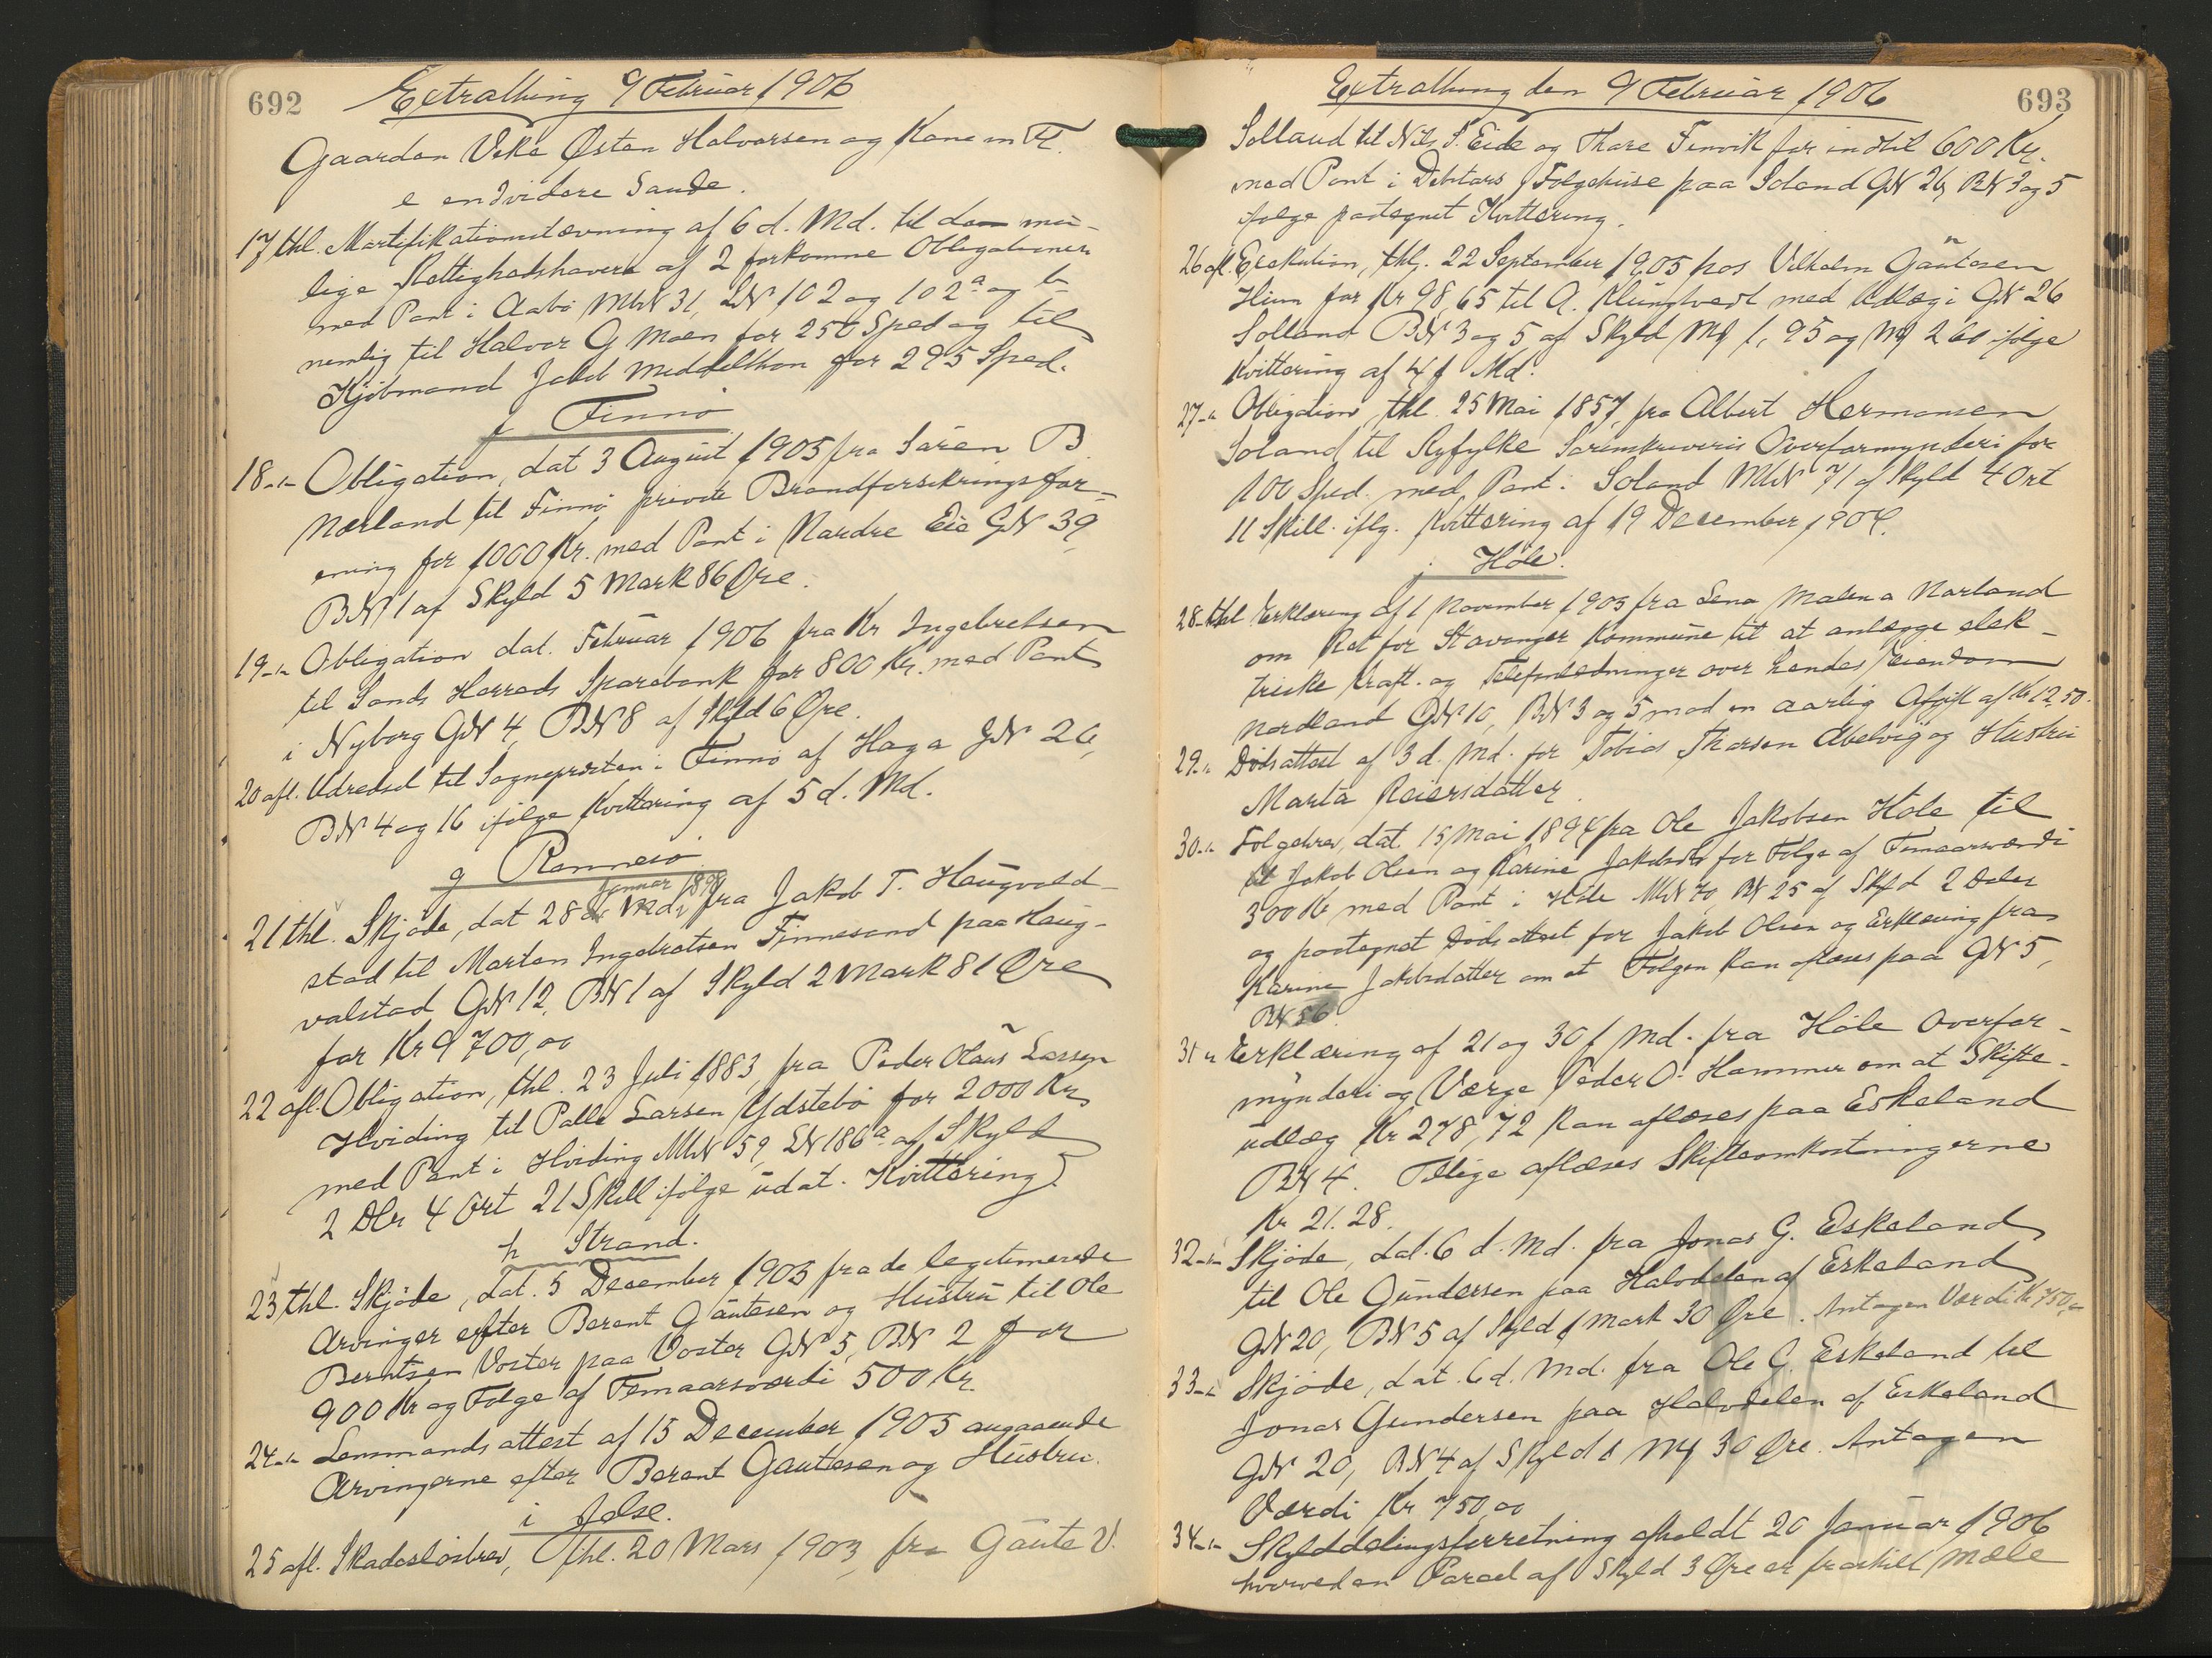 692
Extrathing 9 Februar 1906
Gaarden Veka Østen Halvorsen og Kone m Fl.
e endvidere Saude.
17 thl. Mortifikationsstævning af 6 d. Md. til de mu-
lige Rettighedshavere af 2 forkomne Obligationer
med Pant i Aabø MN 31, LN 102 og 102ª og b
nemlig til Halvor G Moen for 250 Sped og til
Kjøbmand Jakob Middelthon for 295 Sped.
f Finnø
18 -"- Obligation, dat 3 August 1905 fra Søren B.
Nærland til Finnø private Brandforsikringsfor-
ening for 1000 Kr. med Pant i Nordre Eie GN 39
BN 1 af Skyld 5 Mark 86 Øre.
19 -"- Obligation dat. Februar 1906 fra Kr Ingebretsen
til Sands Herreds Sparebank for 800 Kr. med Pant
i Nyborg GN 4, BN 8 af Skyld 6 Øre.
20 afl. Udredsel til Sognepresten i Finnø af Haga GN 26,
BN 4 og 16 ifølge Kvittering af 5 d. Md.
g Rennesø
21 thl. Skjøde, dat 28 Januar 1899 fra Jakob T. Haugvald-
stad til Morten Ingebretsen Finnesand paa Haug-
valstad GN 12, BN 1 af Skyld 2 Mark 81 Øre
for Kr 9700,00
22 afl. Obligation, thl. 23 Juli 1883 fra Peder Olaus Lassen
Hviding til Palle Larsen Ydstebø for 2000 Kr.
med Pant i Hviding MN 59, LN 186ª af Skyld
2 Dlr 4 Ort 21 Skill ifølge udat. Kvittering
h Strand.
23 thl. Skjøde, dat. 5 December 1905 fra de legitimerede
Arvinger efter Berent Gautesen og Hustru til Ole
Berntsen Voster paa Voster GN 5, BN 2 for
900 Kr og Følge af Femaarsværdi 500 Kr.
24 -"- Lensmandsattest af 15 December 1905 angaaende
Arvingerne efter Berent Gautesen og Hustru.
i Jelse.
25 afl. Skadesløsbrev, thl. 20 Mars 1903, fra Gaute V.
693
Extrathing den 9 Februar 1906
Solland til Nils S. Eide og Thore Fenvik for indtil 600 Kr.
med Pant i Debitors Følgehuse paa Soland GN 26, BN 3 og 5
ifølge paategnet Kvittering.
26 afl. Exekution, thl. 22 September 1905 hos Vilhelm Gautesen
Hiim for Kr 98,65 til A. Klungtvedt med Udlæg i GN 26
Solland BN 3 og 5 af Skyld M 1,95 og M 2 60 ifølge
Kvittering af 4 f Md.
27 -"- Obligation, thl. 25 Mai 1857, fra Albert Hermansen
Soland til Ryfylke Sorenskriveris Overformynderi for
100 Sped. med Pant i Soland MN 71 af Skyld 4 Ort
11 Skill. iflg. Kvittering af 19 December 1904.
j. Høle.
28 thl Erklæring af 1 November 1905 fra Lena Malena Norland
om Ret for Stavanger Kommune til at anlægge elek-
triske Kraft- og Telefonledninger over hendes Eiendom
Nordland GN 10, BN 3 og 5 mod en aarlig Afgift af Kr 12,50.
29 -"- Dødsattest af 3 d. Md. for Tobias Tharsen Abelvig og Hustru
Marta Reiersdatter.
30 -"- Følgebrev, dat. 15 Mai 1894 fra Ole Jakobsen Høle til
til Jakob Olsen og Karine Jakobsdtr for Følge af Femaarsværdi
300 Kr med Pant i Høle MN 70, BN 25 af Skyld 2 Daler
og paategnet Dødsattest for Jakob Olsen og Erklæring fra
Karine Jakobsdatter om at Følgen kan aflæses paa GN 5,
BN 56.
31 -"- Erklæring af 21 og 30 f Md. fra Høle Overfor-
mynderi og Værge Peder O. Hammer om at Skifte-
udlæg Kr 278,72 kan aflæses paa Eskeland
BN 4. Tillige aflæses Skifteomkostningerne
Kr 21.28.
32 -"- Skjøde, dat. 6 d. Md. fra Jonas G. Eskeland
til Ole Gundersen paa Halvdelen af Eskeland
GN 20, BN 5 af Skyld 1 Mark 30 Øre. Antagen Værdi Kr 750,00
33 -"- Skjøde, dat. 6 d. Md. fra Ole G. Eskeland til
Jonas Gundersen paa Halvdelen af Eskeland
GN 20, BN 4 af Skyld 1 M 30 Øre. Antagen
Værdi Kr 750,00
34 -"- Skylddelingsforretning afholdt 20 Januar 1906
hvorved en Parcel af Skyld 3 Øre er fraskilt Mæle